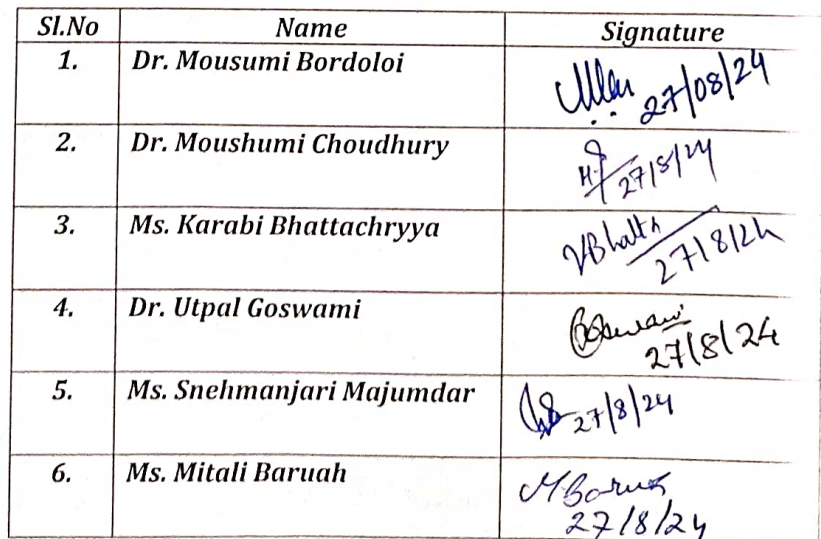 Sl.No Name Signature
1. Dr. Mousumi Bordoloi
27/08/24
2. Dr. Moushumi Choudhury
27/8/24
3. Ms. Karabi Bhattachryya
27/8/24
4. Dr. Utpal Goswami
Goswami
27/8/24
5. Ms. Snehmanjari Majumdar
27/8/24
6. Ms. Mitali Baruah
MBaruah
27/8/24